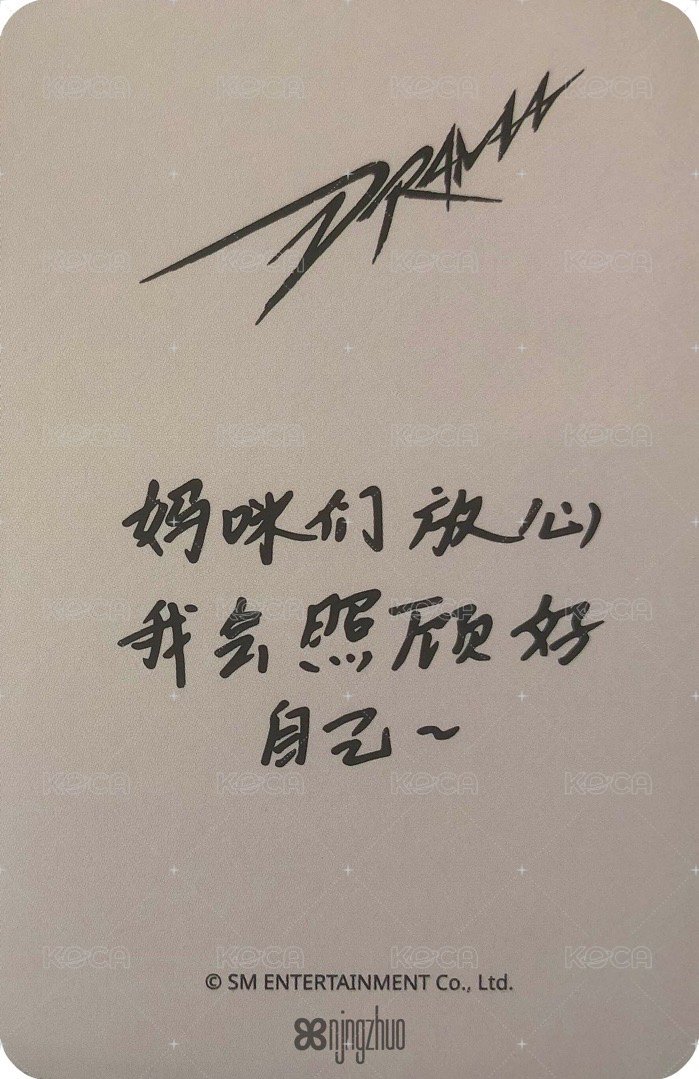 DRAMA
妈咪们放心
我会照顾好
自己~
© SM ENTERTAINMENT Co., Ltd.
njngzhuo
KOCA